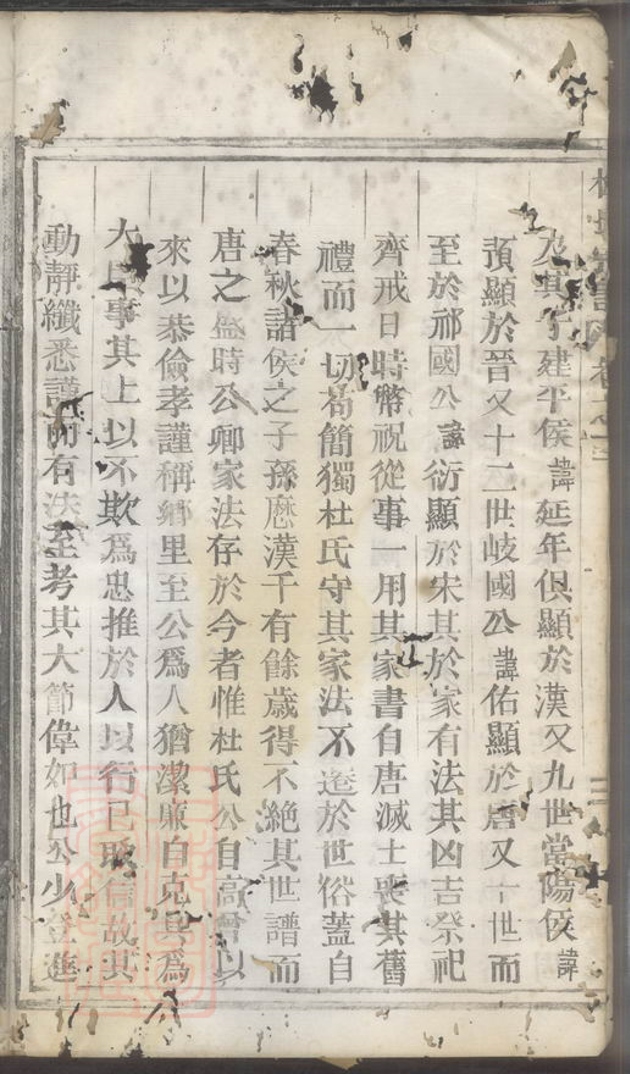 及其子建平侯諱延年俱顯於漢又九世當陽侯諱
預顯於晉又十二世岐國公諱佑顯於唐又十世而
至於祁國公諱衍顯於宋其於家有法其凶吉祭祀
齊戒日時幣祝從事一用其家書自唐滅士喪其舊
禮而一切茍簡獨杜氏守其家法不遷於世俗蓋自
春秋諸侯之子孫歷漢千有餘歲得不絕其世譜而
唐之盛時公卿家法存於今者惟杜氏公自高曾以
來以恭儉孝謹稱鄉里至公爲人猶潔廉自克其爲
大臣事其上以不欺爲忠推於人以行己取信故其
動靜纖悉謹而有法至考其大節偉如也公少登進